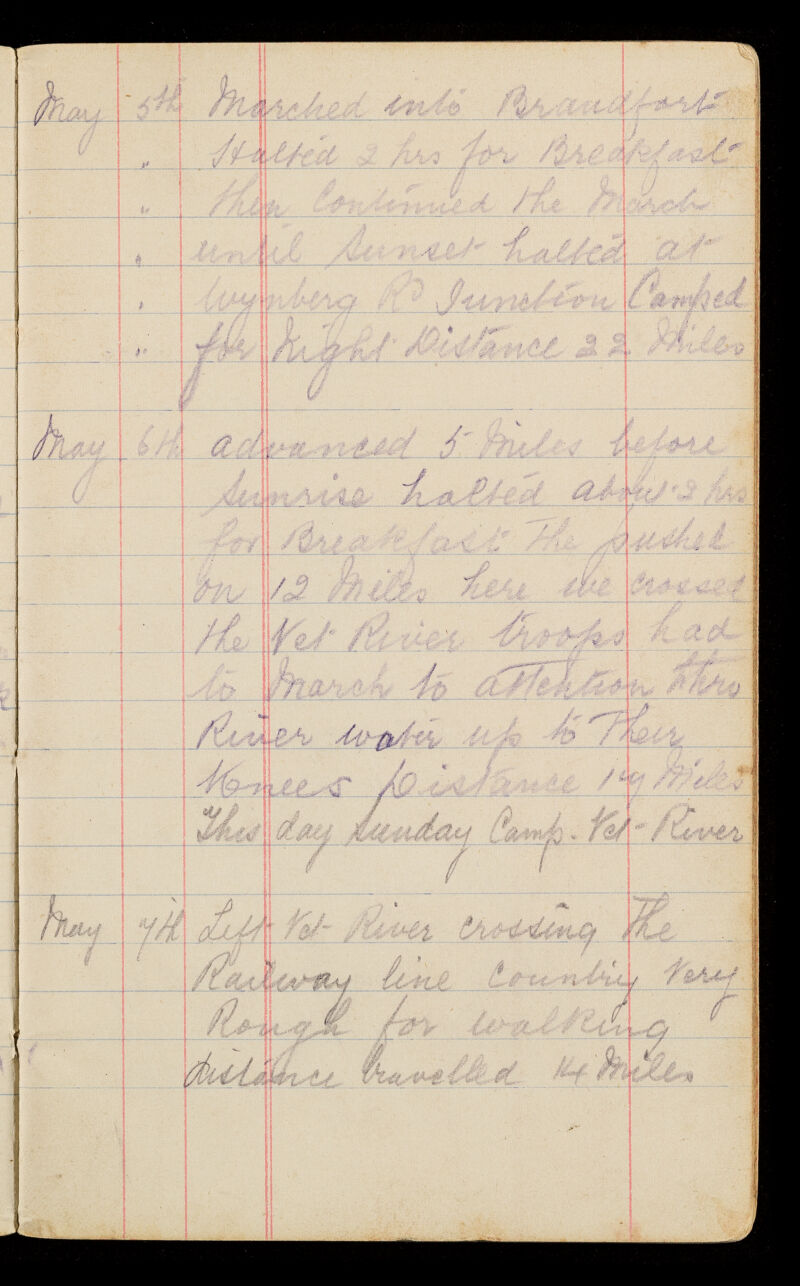 May 5th Marched into Brandfort
" Halted 2 hrs for Breakfast
" then Continued the March
" until Sunset halted at
" Wynberg Rd Junction Camped
" for Night Distance 22 Miles
May 6th advanced 5 Miles before
Sunrise halted about 2 hrs
for Breakfast The pushed
on 12 Miles here we crossed
the Vet River troops had
to March to attention thro
River water up to Their
Knees Distance 17 Miles
This day Sunday Camp. Vet River
May 7th Left Vet River crossing The
Railway line Country Very
Rough for walking
distance travelled 14 Miles